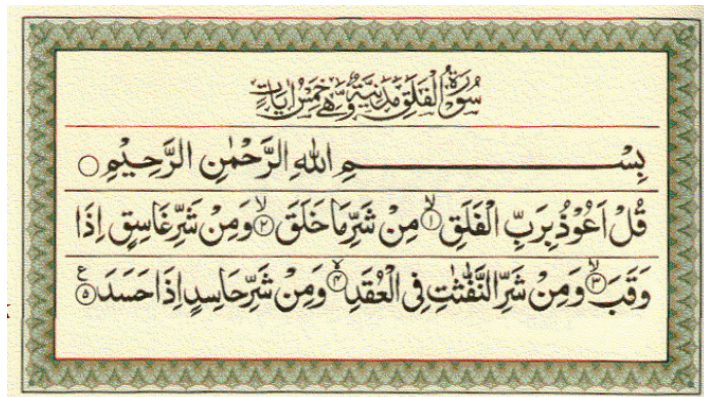 سُوْرَةُ الْفَلَقِ مَدَنِيَّةٌ وَّهِيَ خَمْسُ اٰيَاتٍ
بِسْمِ اللهِ الرَّحْمٰنِ الرَّحِيْمِ ○
قُلْ اَعُوْذُ بِرَبِّ الْفَلَقِ ۙ﴿۱﴾ مِنْ شَرِّ مَا خَلَقَ ۙ﴿۲﴾ وَمِنْ شَرِّ غَاسِقٍ اِذَا
وَقَبَ ۙ﴿۳﴾ وَمِنْ شَرِّ النَّفّٰثٰتِ فِى الْعُقَدِ ۙ﴿۴﴾ وَمِنْ شَرِّ حَاسِدٍ اِذَا حَسَدَ ﴿۵﴾ ع